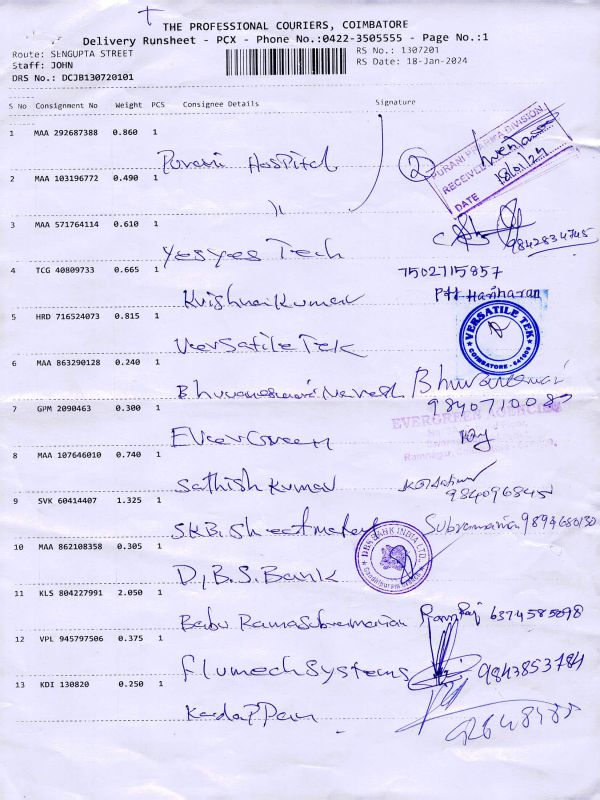 THE PROFESSIONAL COURIERS, COIMBATORE
Delivery Runsheet - PCX - Phone No.:0422-3505555 - Page No.:1
Route: SENGUPTA STREET
Staff: JOHN
DRS No.: DCJB130720101
RS No.: 1307201
RS Date: 18-Jan-2024
S No Consignment No Weight PCS Consignee Details Signature
1 MAA 292687388 0.860 1
Purani Hospital
2
PURANI PHARMA DIVISION
RECEIVED
18/01/24
DATE
2 MAA 103196772 0.490 1
3 MAA 571764114 0.610 1
Yesyes Tech
9842834745
4 TCG 40809733 0.665 1
7502715857
Krishnaikumar
Hariharan
5 HRD 716524073 0.815 1
Versatile Tek
VERSATILE TEK
COIMBATORE
6 MAA 863290128 0.240 1
Bhuvaneswari Naresh Bhuvaneswari
7 GPM 2090463 0.300 1
EVERGREEN
Evergreen
8 MAA 107646010 0.740 1
Sathish Kumar
984096845
9 SVK 60414407 1.325 1
S.K.B. Sheetmetal Subramanian
10 MAA 862108358 0.305 1
DBS BANK INDIA LTD.
D.B.S. Bank
11 KLS 804227991 2.050 1
Babu Ramasubramanian Ramraj 6374585898
12 VPL 945797506 0.375 1
Flumech Systems 9843853784
13 KDI 130820 0.250 1